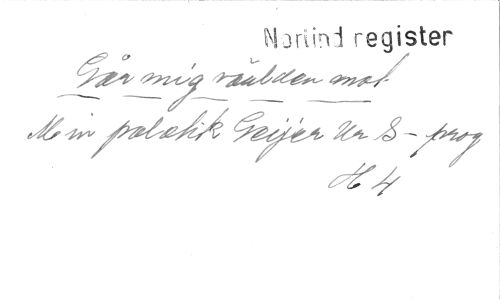 Norlind register
Går mig världen mot
Min polatik Geijer Ur S - prog
H 4